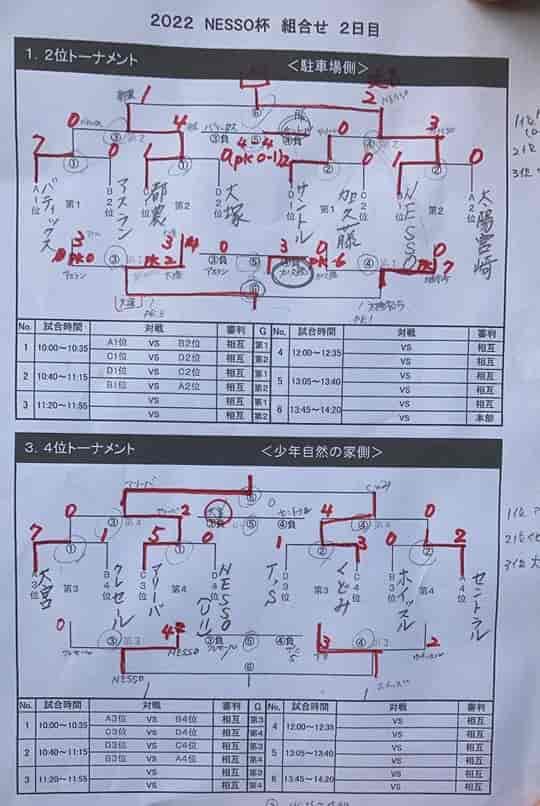 2022 NESSO杯 組合せ 2日目
1．2位トーナメント ＜駐車場側＞
1 2 NESSO
0 4 4 4 0 3
7 0 1 0(pk0-1)2 0 1 0
A1位 B2位 C1位 D2位 D1位 C2位 B1位 A2位
第1 第2 第1 第2
バティックス アスラン 都農 大塚 サントル 加久藤 NESSO 太陽宮崎
3 3 0 3 0 0
pk0 pk2 4 pk-6 pk 7
アスラン 大塚 アスラン
No. 試合時間 対戦 審判 G No. 試合時間 対戦 審判
1 10:00〜10:35 A1位 VS B2位 相互 第1
C1位 VS D2位 相互 第2
2 10:40〜11:15 D1位 VS C2位 相互 第1
B1位 VS A2位 相互 第2
3 11:20〜11:55 VS 相互 第1
VS 相互 第2
4 12:00〜12:35 VS 相互
VS 相互
5 13:05〜13:40 VS 相互
VS 相互
6 13:45〜14:20 VS 相互
VS 本部
3．4位トーナメント ＜少年自然の家側＞
アリーバ くとみ
0 2 4 0
7 1 5 0 1 3 0 2
A3位 B4位 C3位 D4位 D3位 C4位 B3位 A4位
第3 第4 第3 第4
大宮 クレセール アリーバ NESSO T.S くとみ ホイッスル セントラル
0 4 3 2
NESSO
NESSO
No. 試合時間 対戦 審判 G No. 試合時間 対戦 審判
1 10:00〜10:35 A3位 VS B4位 相互 第3
C3位 VS D4位 相互 第4
2 10:40〜11:15 D3位 VS C4位 相互 第3
B3位 VS A4位 相互 第4
3 11:20〜11:55 VS 相互 第3
VS 相互 第4
4 12:00〜12:35 VS 相互
VS 相互
5 13:05〜13:40 VS 相互
VS 相互
6 13:45〜14:20 VS 相互
VS 相互